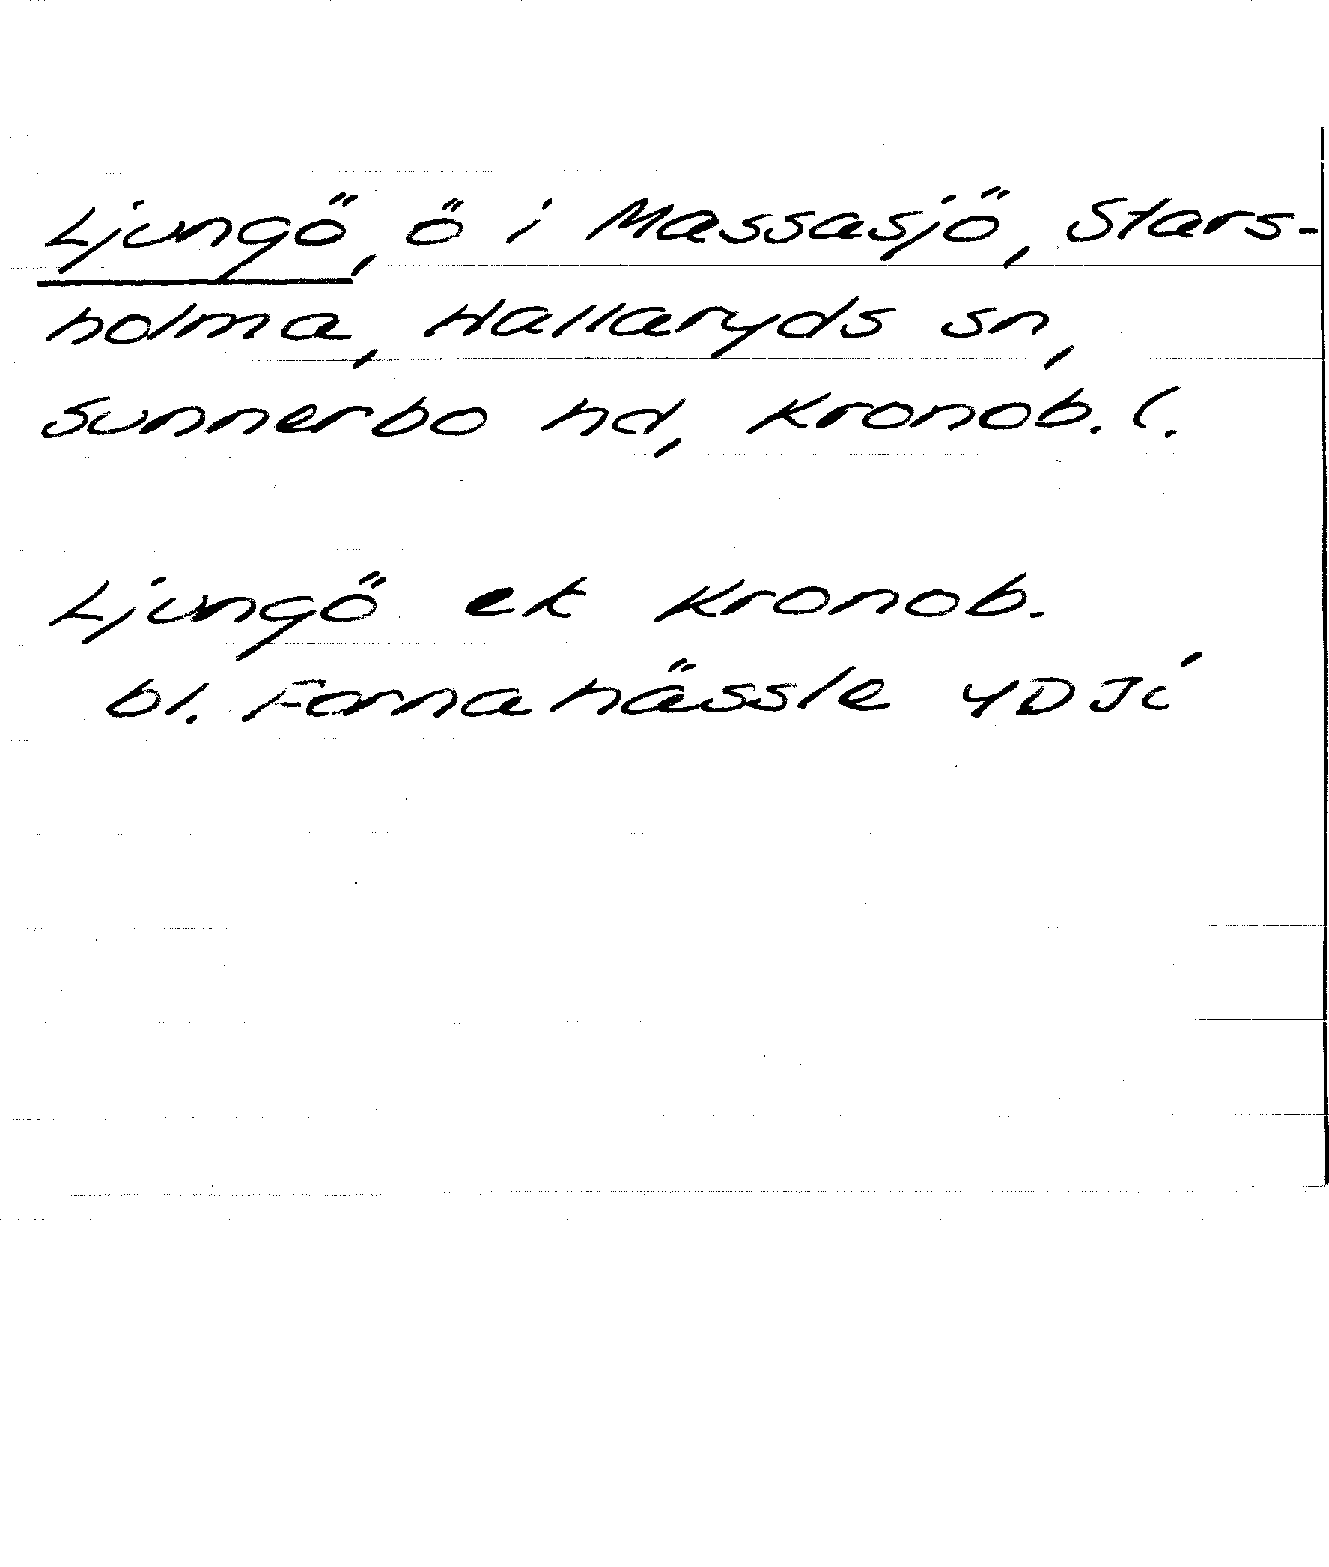 Ljungö, ö i Massasjö, Stars-
holma, Hallaryds sn,
Sunnerbo hd, Kronob. l.
Ljungö ek Kronob.
bl. Fornahässle 4D Ji